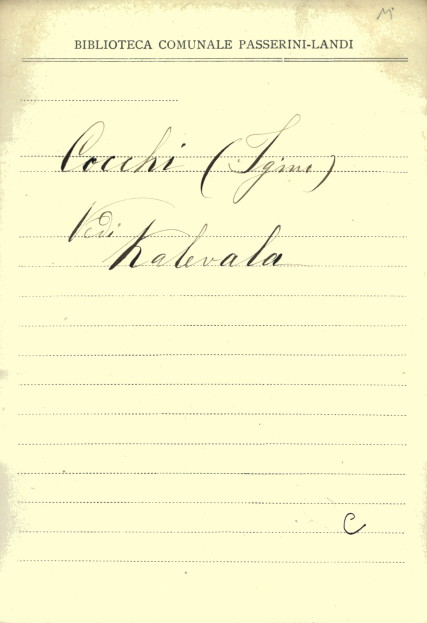 BIBLIOTECA COMUNALE PASSERINI-LANDI
Cocchi (Igino)
Vedi
Kalevala
C